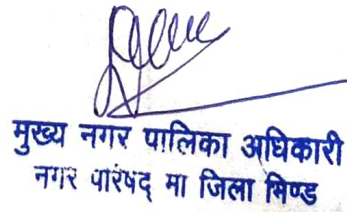 मुख्य नगर पालिका अधिकारी
नगर परिषद् मा जिला भिण्ड